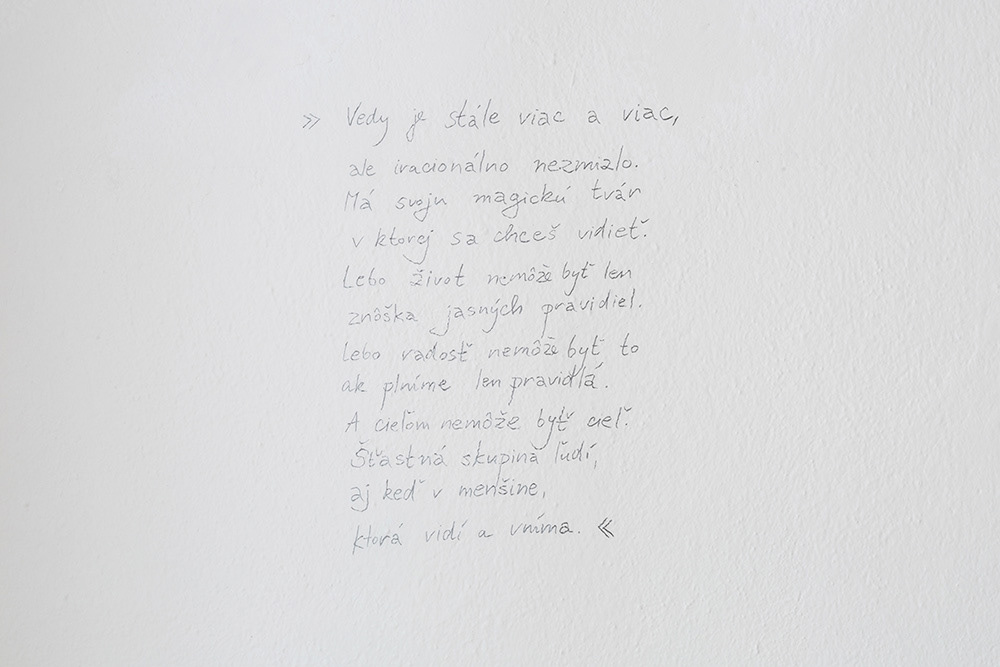 » Vedy je stále viac a viac,
ale iracionálno nezmizlo.
Má svoju magickú tvár
v ktorej sa chceš vidieť.
Lebo život nemôže byť len
znôška jasných pravidiel.
Lebo radosť nemôže byť to
ak plníme len pravidlá.
A cieľom nemôže byť cieľ.
Šťastná skupina ľudí,
aj keď v menšine,
ktorá vidí a vníma. «